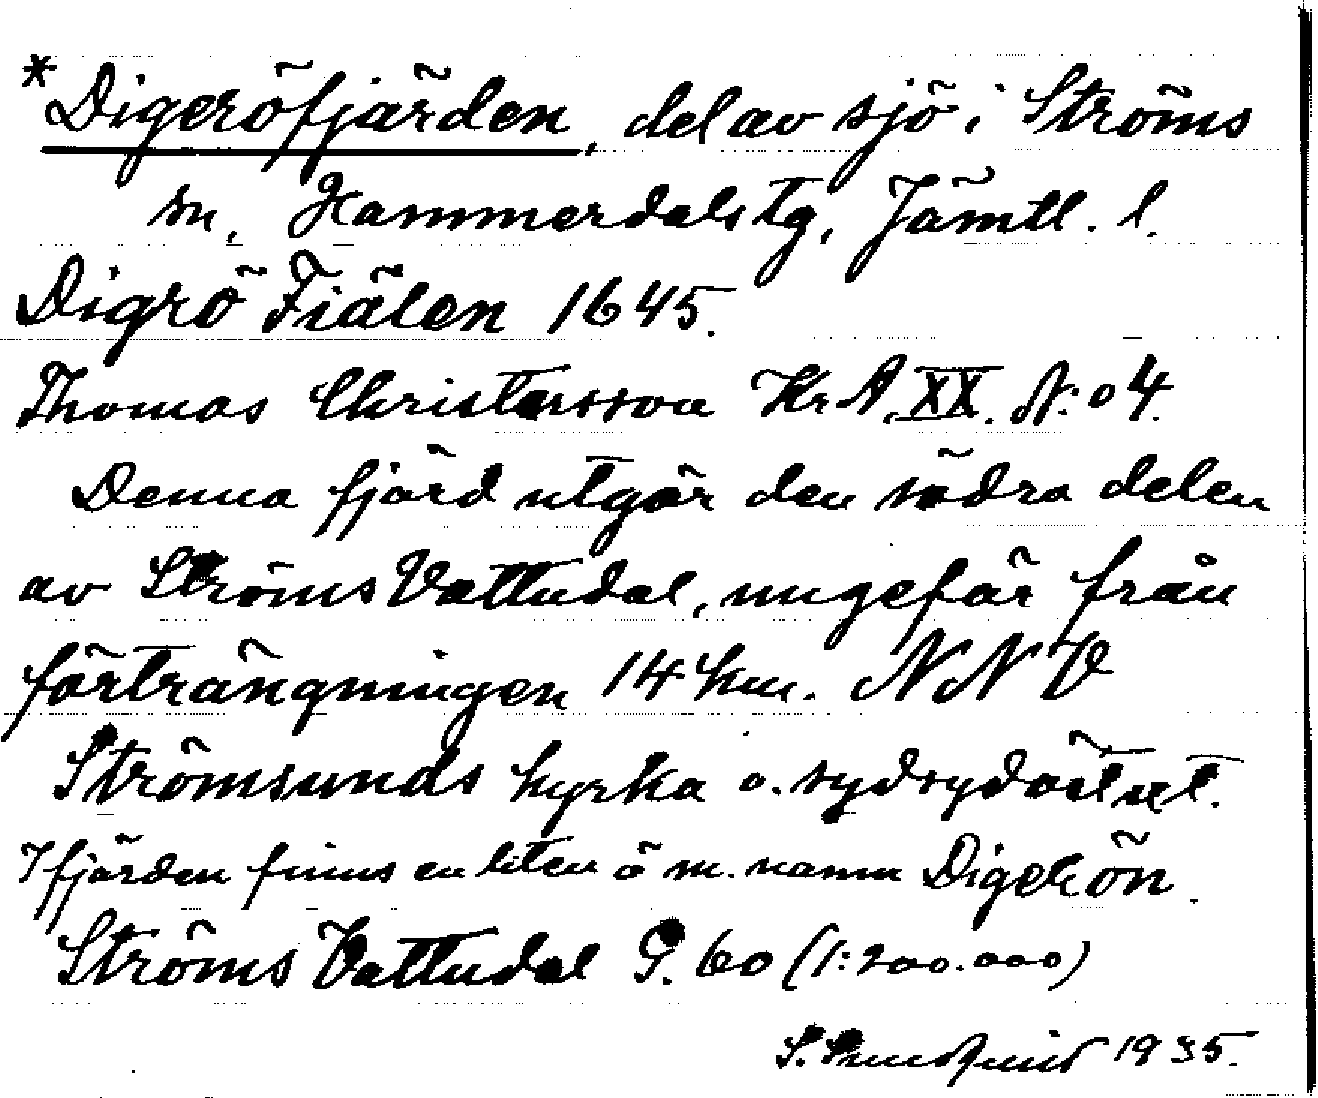 *Digeröfjärden, del av sjö i Ströms
sn, Hammerdals tg, Jämtl. l.
Digrö Fiälen 1645.
Thomas Christersson Kr A. XX. N:o 4.
Denna fjärd utgör den södra delen
av Ströms Vattudal, ungefär från
förträngningen 14 km. NNV
Strömsunds kyrka o. sydsydöstut.
I fjärden finns en liten ö m. namn Digerön.
Ströms Vattudal G. 60 (1:200.000)
S. 1935.